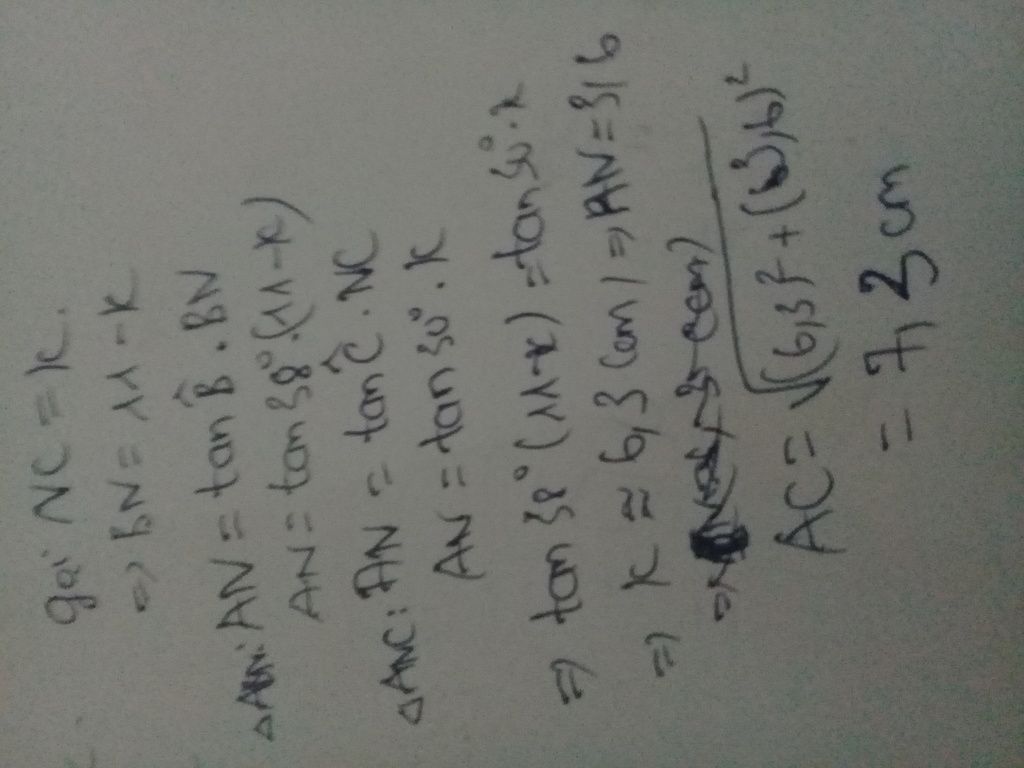 gọi NC = K.
=> BN = 11 - K
△ABN: AN = tan B̂ . BN
AN = tan 38° . (11 - K)
△ANC: AN = tan Ĉ . NC
AN = tan 30° . K
=> tan 38° (11 - K) = tan 30° . K
=> K ≈ 6,3 (cm) => AN = 3,6
AC = √(6,3)² + (3,6)²
= 7,3 cm